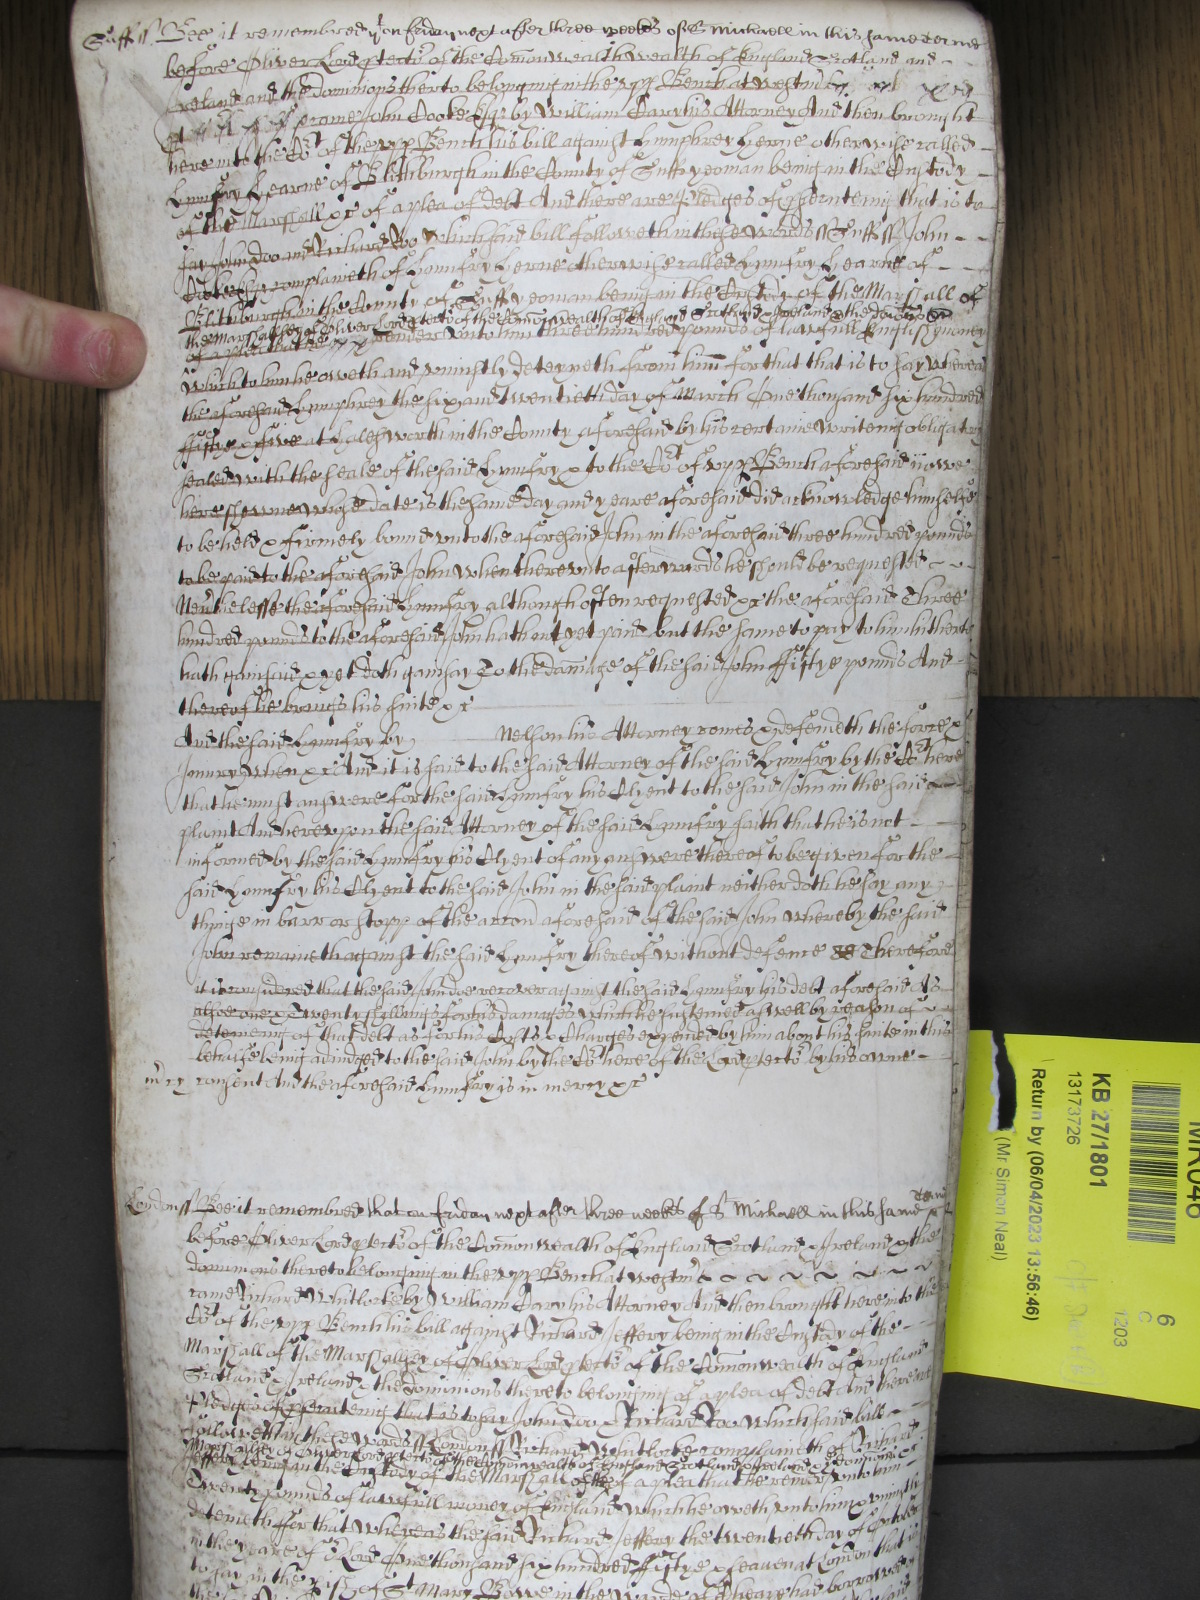 Suff ss. Bee it remembred yt on friday next after three weeks of St Michaell in this same terme
before Oliver Lord ptector of the Comonwealth of England Scotland and
Ireland and the dominions thereto belonging in the upp Bench at westmr
came John Cooke Esqr by William Cary his Attorney And then brought
here into the Cort of the upp Bench his bill against Humphrey Herne otherwise called
Humfry Hearne of Blithburgh in the County of Suff yeoman being in the Custody
of the Marshall &c of a plea of debt And there are pledges of psecuteing that is to
say John Doo and Richard Roo which said bill followeth in these words ss Suff ss John
Cooke Esqr complaineth of Humfry Herne otherwise called Humfry Hearne of
Blithburgh in the County of Suff yeoman being in the Custody of the Marshall of
the Marshalsey of Oliver Lord ptector of the Comonwealth of England Scotland & Ireland & the
of a plea that he render unto him three hundred pounds of lawfull English money
which to him he oweth and uniustly deteyneth from him for that that is to say whereas
the aforesaid Humphrey the six and Twentieth day of March One thousand six hundred
ffiftye & five at Halesworth in the County aforesaid by his certaine writeing obligatory
sealed with the seale of the said Humfry & to the Cort of upp Bench aforesaid nowe
here shewne whose date is the same day and yeare aforesaid did acknowledge himselfe
to be held & firmely bound unto the aforesaid John in the aforesaid three hundred pounds
to be paid to the aforesaid John when thereunto afterwards he should be requested
Nevthelesse the aforesaid Humfry although often requested &c the aforesaid Three
hundred pounds to the aforesaid John hath not yet paid but the same to pay to him hitherto
hath gainsaid & yet doth gainsay To the damage of the said John ffiftye pounds And
thereof he brings his suite &c
And the said Humfry by Nelson his Attorney comes & defendeth the force &
Iniury when &c And it is said to the said Attorney of the said Humfry by the Cort here
that he must answere for the said Humfry his Clyent to the said John in the said
plaint And hereupon the said Attorney of the said Humfry saith that he is not
informed by the said Humfry his Clyent of any answere thereof to be given for the
said Humfry his Clyent to the said John in the said plaint neither doth he say any
thinge in barr or stopp of the accon aforesaid of the said John whereby the said
John remaineth against the said Humfry thereof without defence Therefore
it is considered that the said John doe recover against the said Humfry his debt aforesaid As
alsoe Twenty shillings for his damages which he susteined aswell by reason of
deteineing of that debt as for his Costs & Charges expended by him about his suite in this
behalfe being adiudged to the said John by the Cort here of the Lord ptector by his owne
mcy consent And the aforesaid Humfry is in mercy &c
London ss Bee it remembred that on friday next after three weeks of St Michaell in this same terme
before Oliver Lord ptector of the Comonwealth of England Scotland & Ireland & the
dominions thereto belonging in the upp Bench at westmr
came Richard Whitlocke by William Cary his Attorney And then brought here into the
Cort of the upp Bench his bill against Richard Jeffery being in the Custody of the
Marshall of the Marshallsey of Oliver Lord ptector of the Comonwealth of England
Scotland & Ireland & the dominions thereto belonging of a plea of debt And there are
pledges of psecuteing that is to say John Doo & Richard Roo which said bill
followeth in these words ss London ss Richard Whitlocke complaineth of Richard
Jeffery being in the Custody of the Marshall of the
Marshalsey of Oliver Lord ptector of the Comonwealth of England Scotland & Ireland & dominions &c
of a plea that he render unto him
Twenty pounds of lawfull money of England which he oweth unto him & uniustly
deteineth for that whereas the said Richard Jeffery the twentieth day of October
in the yeare of or Lord One thousand six hundred ffiftye & seaven at London that is
to say in the pish of St Mary Bowe in the Warde of Cheape had borrowed
MR046
6
C
1203
KB 27/1801
13173726
Return by (06/04/2023 13:56:46)
(Mr Simon Neal)